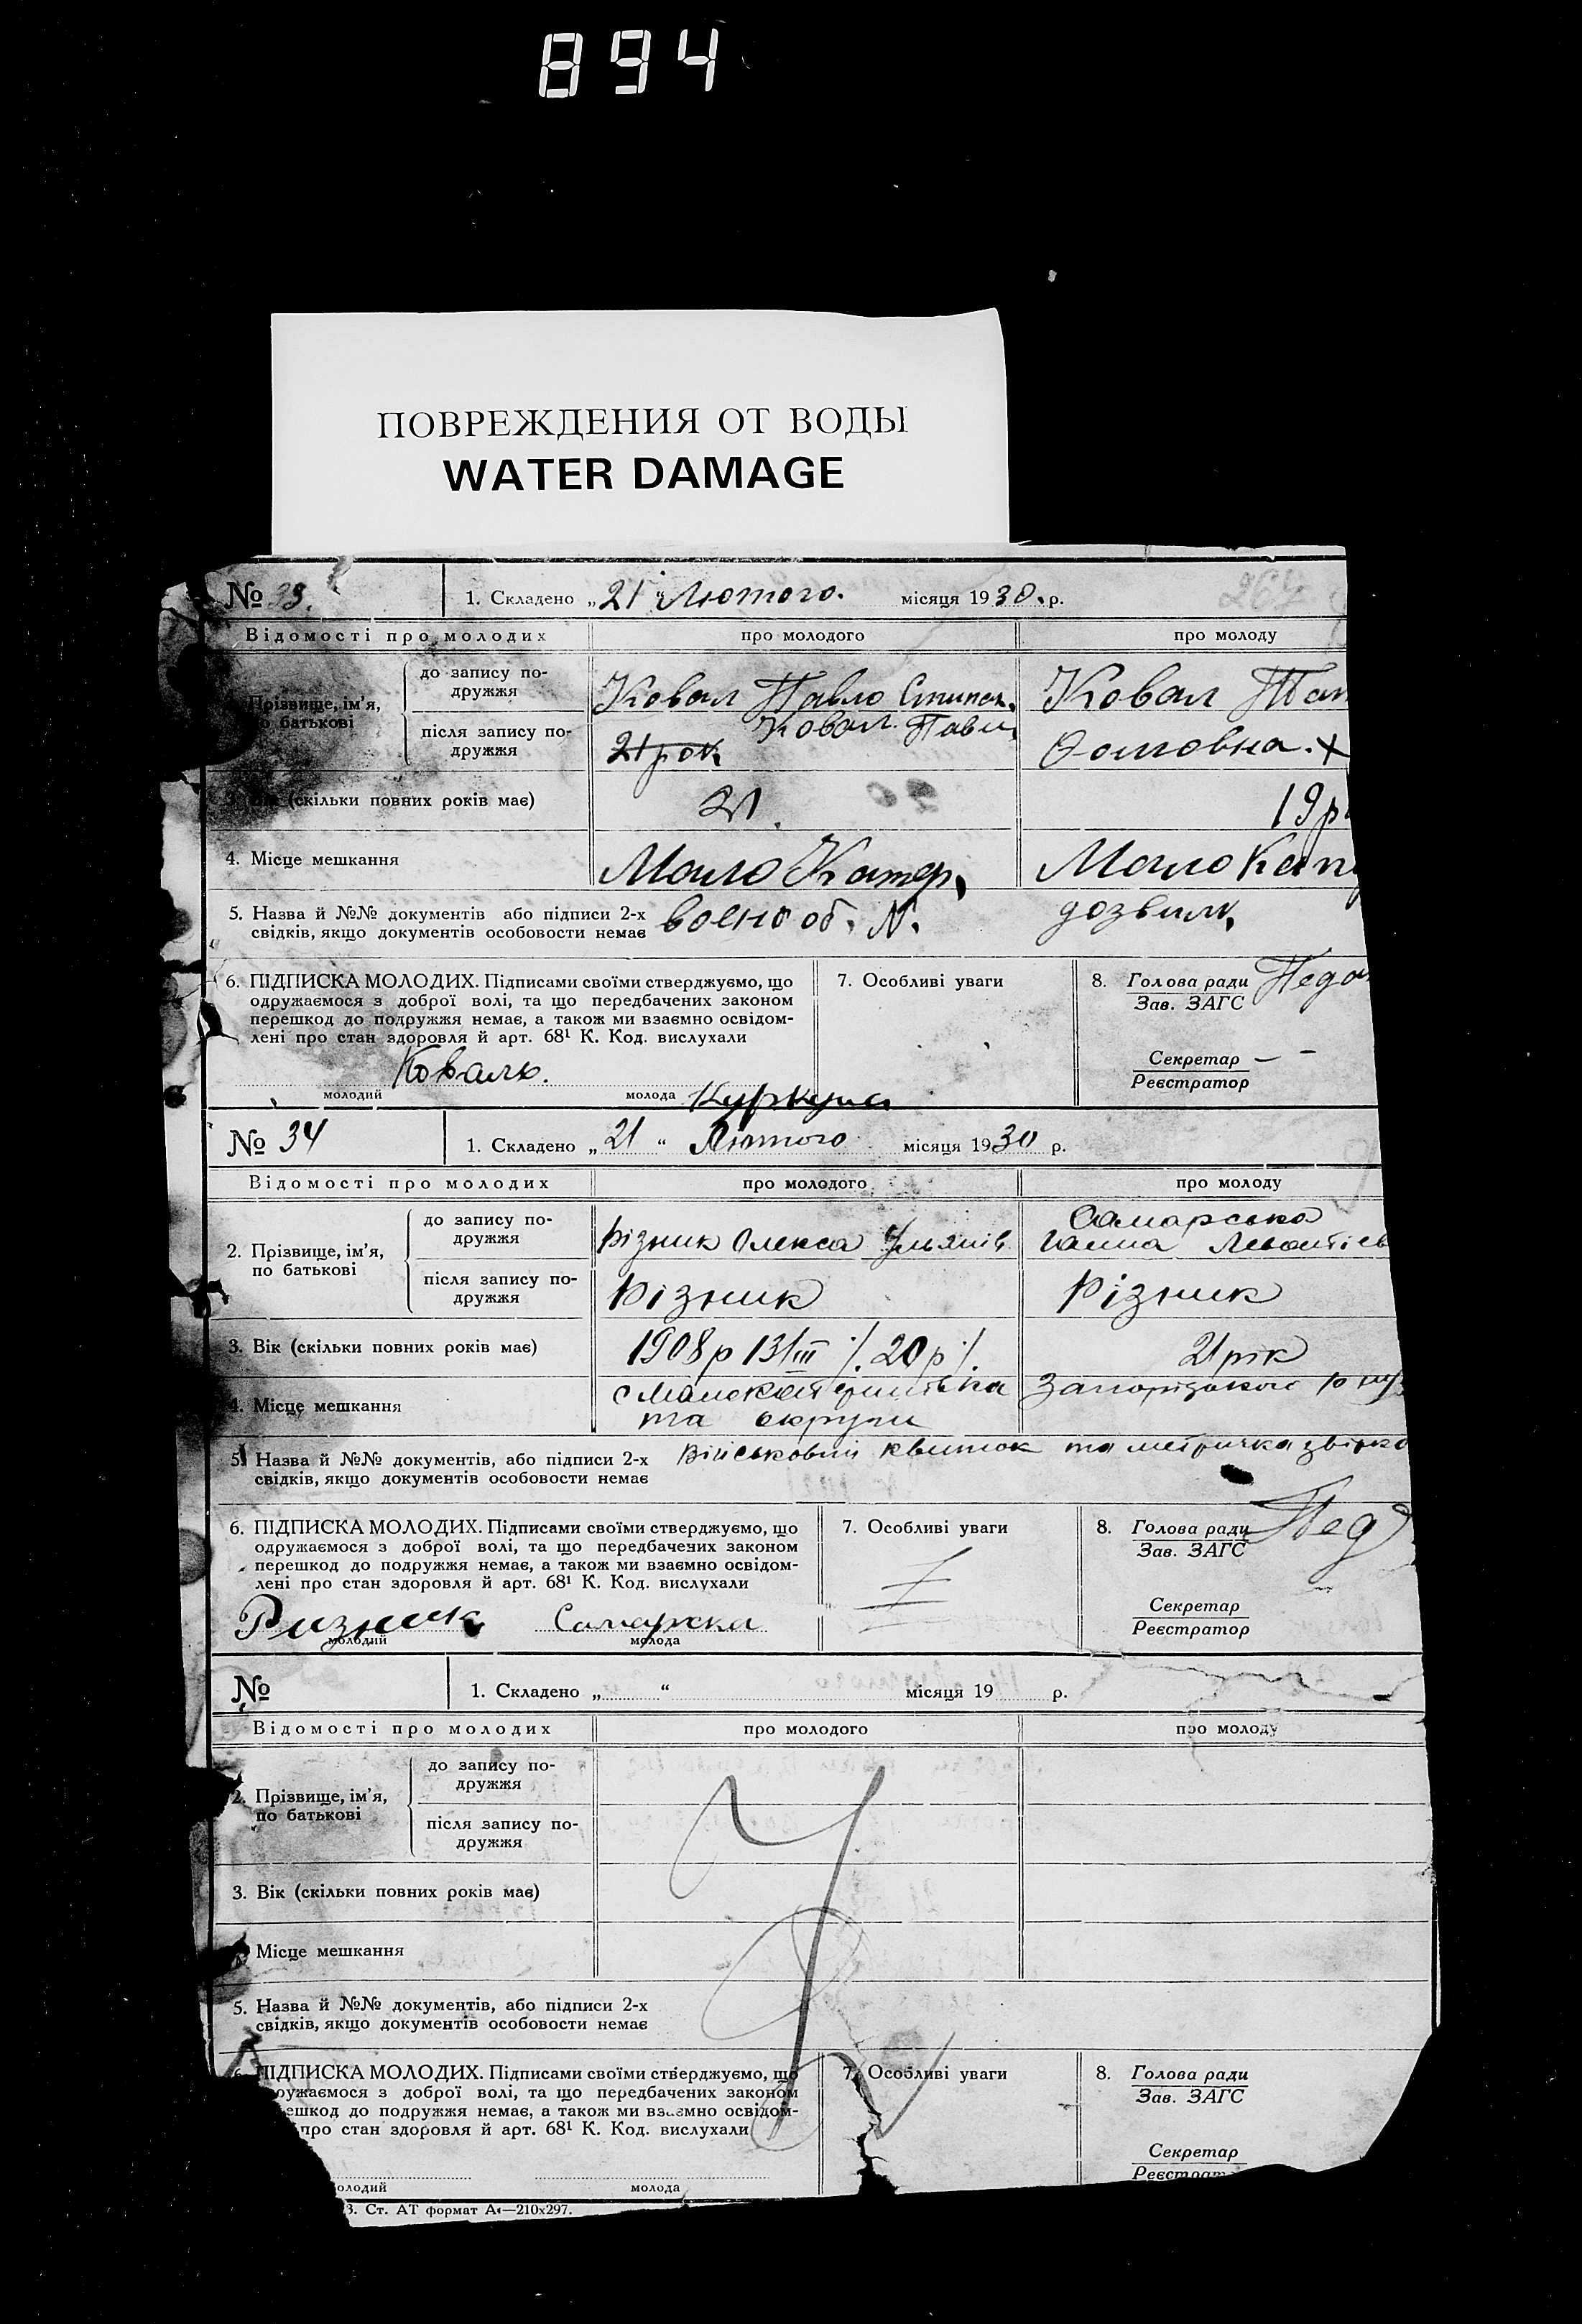 894
ПОВРЕЖДЕНИЯ ОТ ВОДЫ
WATER DAMAGE
№ 33.
1. Складено „21“ Лютого. місяця 1930. р.
Відомості про молодих
про молодого
про молоду
Прізвище, ім’я,
по батькові
до запису по-
дружжя
Ковал Павло
Ковал
після запису по-
дружжя
21 рок
Ковал.
3. Вік (скільки повних років має)
21.
19 р
4. Місце мешкання
Мало Катер.
Мало Кат
5. Назва й №№ документів або підписи 2-х
свідків, якщо документів особовости немає
военооб. N.
дозвил.
6. ПІДПИСКА МОЛОДИХ. Підписами своїми стверджуємо, що
одружаємося з доброї волі, та що передбачених законом
перешкод до подружжя немає, а також ми взаємно освідом-
лені про стан здоровля й арт. 68¹ К. Код. вислухали
Коваль.
молодий
молода
7. Особливі уваги
8. Голова ради
Зав. ЗАГС
Секретар
Реєстратор
№ 34
1. Складено „21“ Лютого місяця 1930 р.
Відомості про молодих
про молодого
про молоду
2. Прізвище, ім’я,
по батькові
до запису по-
дружжя
Різник Олекса
Самарська
Ганна
після запису по-
дружжя
Різник
Різник
3. Вік (скільки повних років має)
1908 р 13/III /. 20 р /.
21 рік
4. Місце мешкання
с Малокатеринівка
та округи
Запорізького
5. Назва й №№ документів, або підписи 2-х
свідків, якщо документів особовости немає
Військовий квиток та метрична
6. ПІДПИСКА МОЛОДИХ. Підписами своїми стверджуємо, що
одружаємося з доброї волі, та що передбачених законом
перешкод до подружжя немає, а також ми взаємно освідом-
лені про стан здоровля й арт. 68¹ К. Код. вислухали
Ризник Самарска
молодий
молода
7. Особливі уваги
8. Голова ради
Зав. ЗАГС
Секретар
Реєстратор
№
1. Складено „ “ місяця 19 р.
Відомості про молодих
про молодого
про молоду
2. Прізвище, ім’я,
по батькові
до запису по-
дружжя
після запису по-
дружжя
3. Вік (скільки повних років має)
Місце мешкання
5. Назва й №№ документів, або підписи 2-х
свідків, якщо документів особовости немає
ПІДПИСКА МОЛОДИХ. Підписами своїми стверджуємо, що
ружаємося з доброї волі, та що передбачених законом
ешкод до подружжя немає, а також ми взаємно освідом-
про стан здоровля й арт. 68¹ К. Код. вислухали
олодий
молода
7. Особливі уваги
8. Голова ради
Зав. ЗАГС
Секретар
Реєстрат
3. Ст. АТ формат А4—210х297.